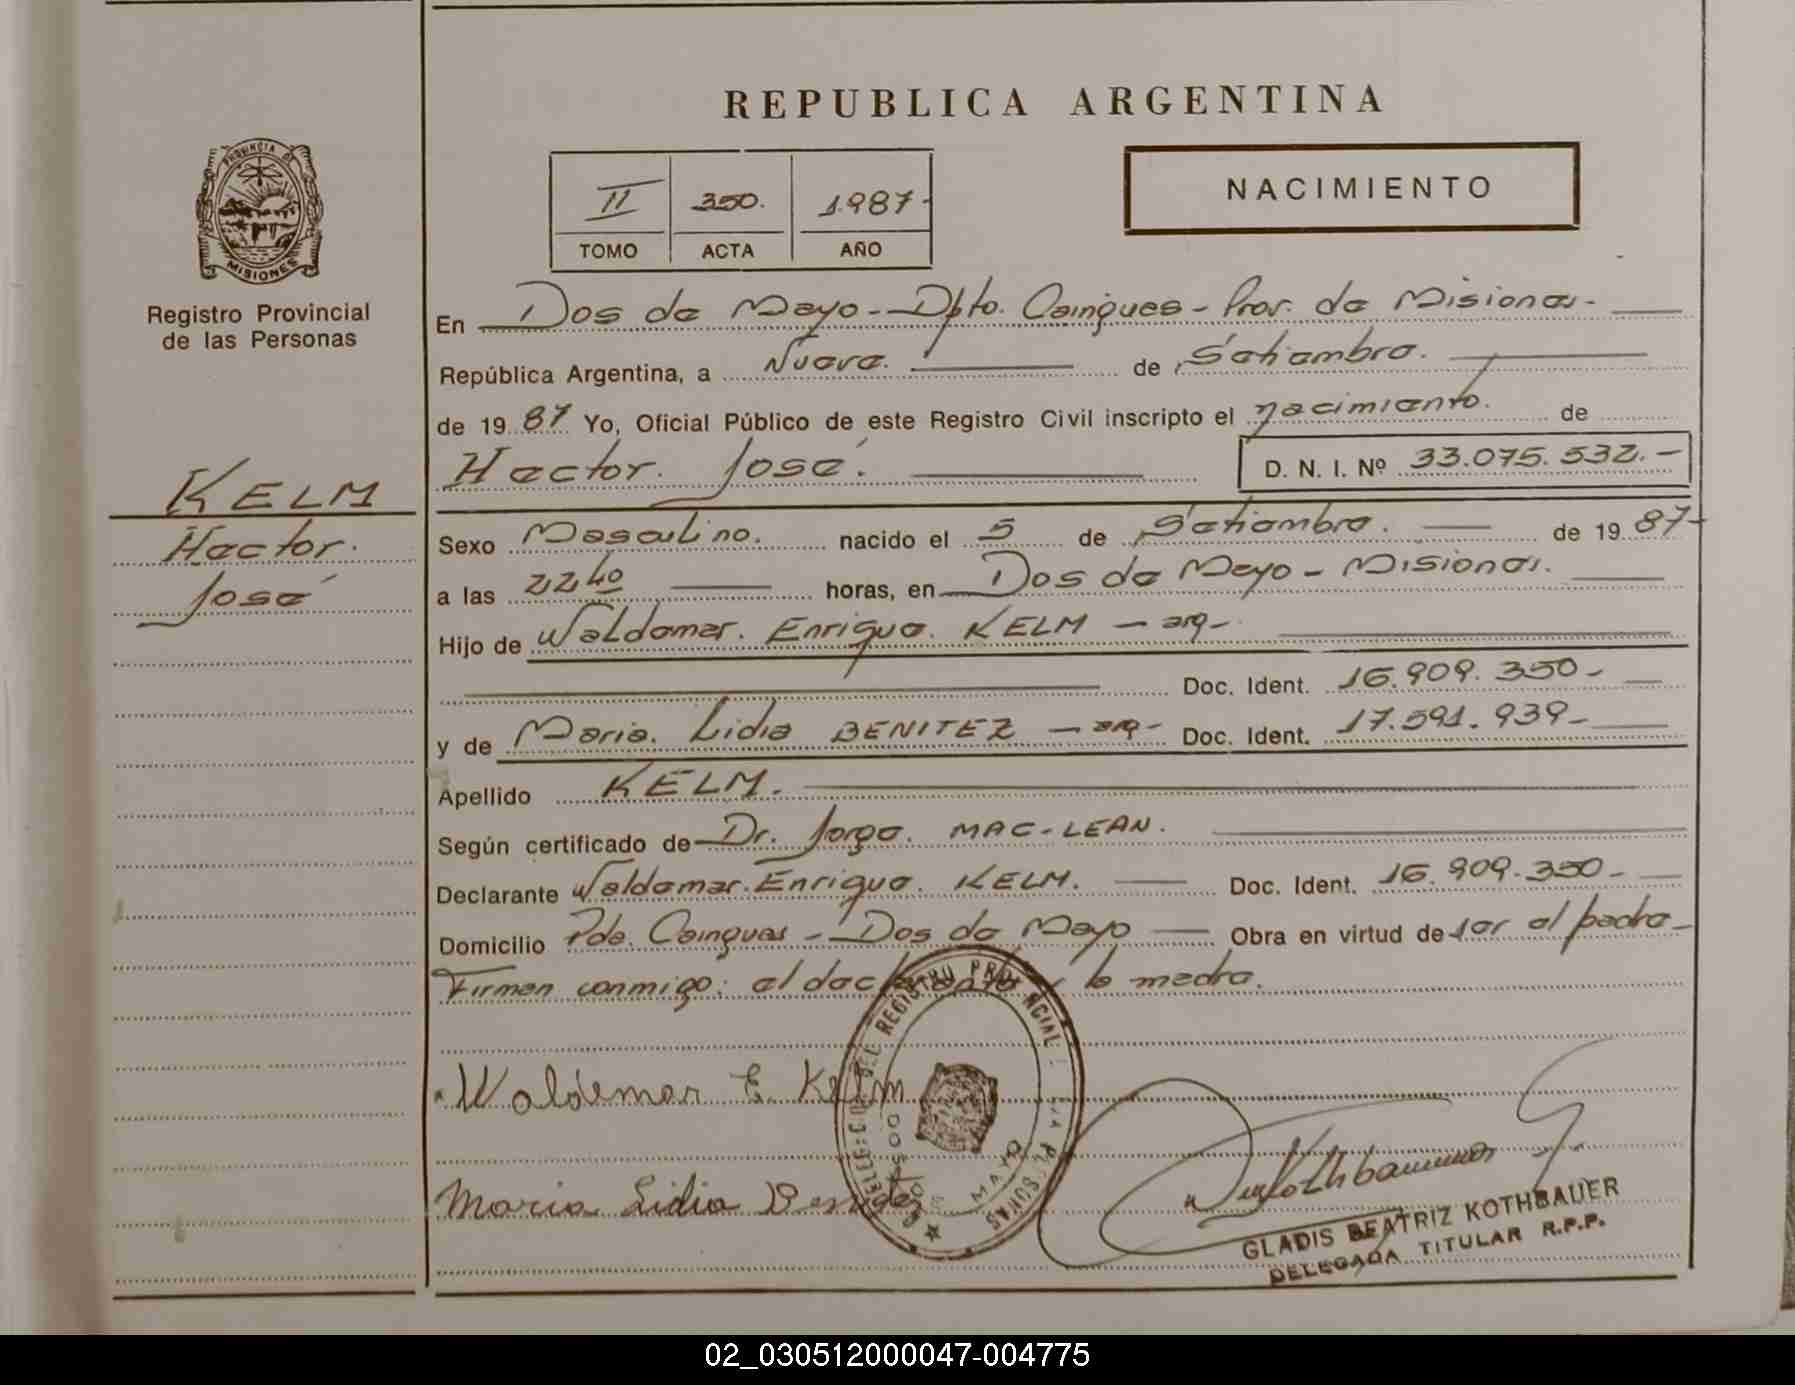 REPUBLICA ARGENTINA
PROVINCIA DE
MISIONES
Registro Provincial
de las Personas
II 350. 1.987-
TOMO ACTA AÑO
NACIMIENTO
En Dos de Mayo - Dpto. Cainguas - Prov. de Misiones -
República Argentina, a Nueve. de Setiembre.
de 19 87 Yo, Oficial Público de este Registro Civil inscripto el nacimiento. de
Hector. José. D. N. I. Nº 33.075.532.-
KELM
Hector.
José
Sexo Masculino. nacido el 5 de Setiembre. de 19 87-
a las 22 40 horas, en Dos de Mayo - Misiones.
Hijo de Waldemar. Enrique. KELM - arg -
Doc. Ident. 16.909.350-
y de Maria. Lidia BENITEZ - arg - Doc. Ident. 17.591.939-
Apellido KELM.
Según certificado de Dr. Jorge. MAC-LEAN.
Declarante Waldemar. Enrique. KELM. Doc. Ident. 16.909.350-
Domicilio Pde. Cainguas - Dos de Mayo Obra en virtud de ser el padre -
Firman conmigo: el declarante y la madre.
Waldemar E. Kelm
Maria Lidia Benitez
REGISTRO PROVINCIAL
DE LAS PERSONAS
DOS DE MAYO
Kothbauer
GLADIS BEATRIZ KOTHBAUER
DELEGADA TITULAR R.P.P.
02_030512000047-004775